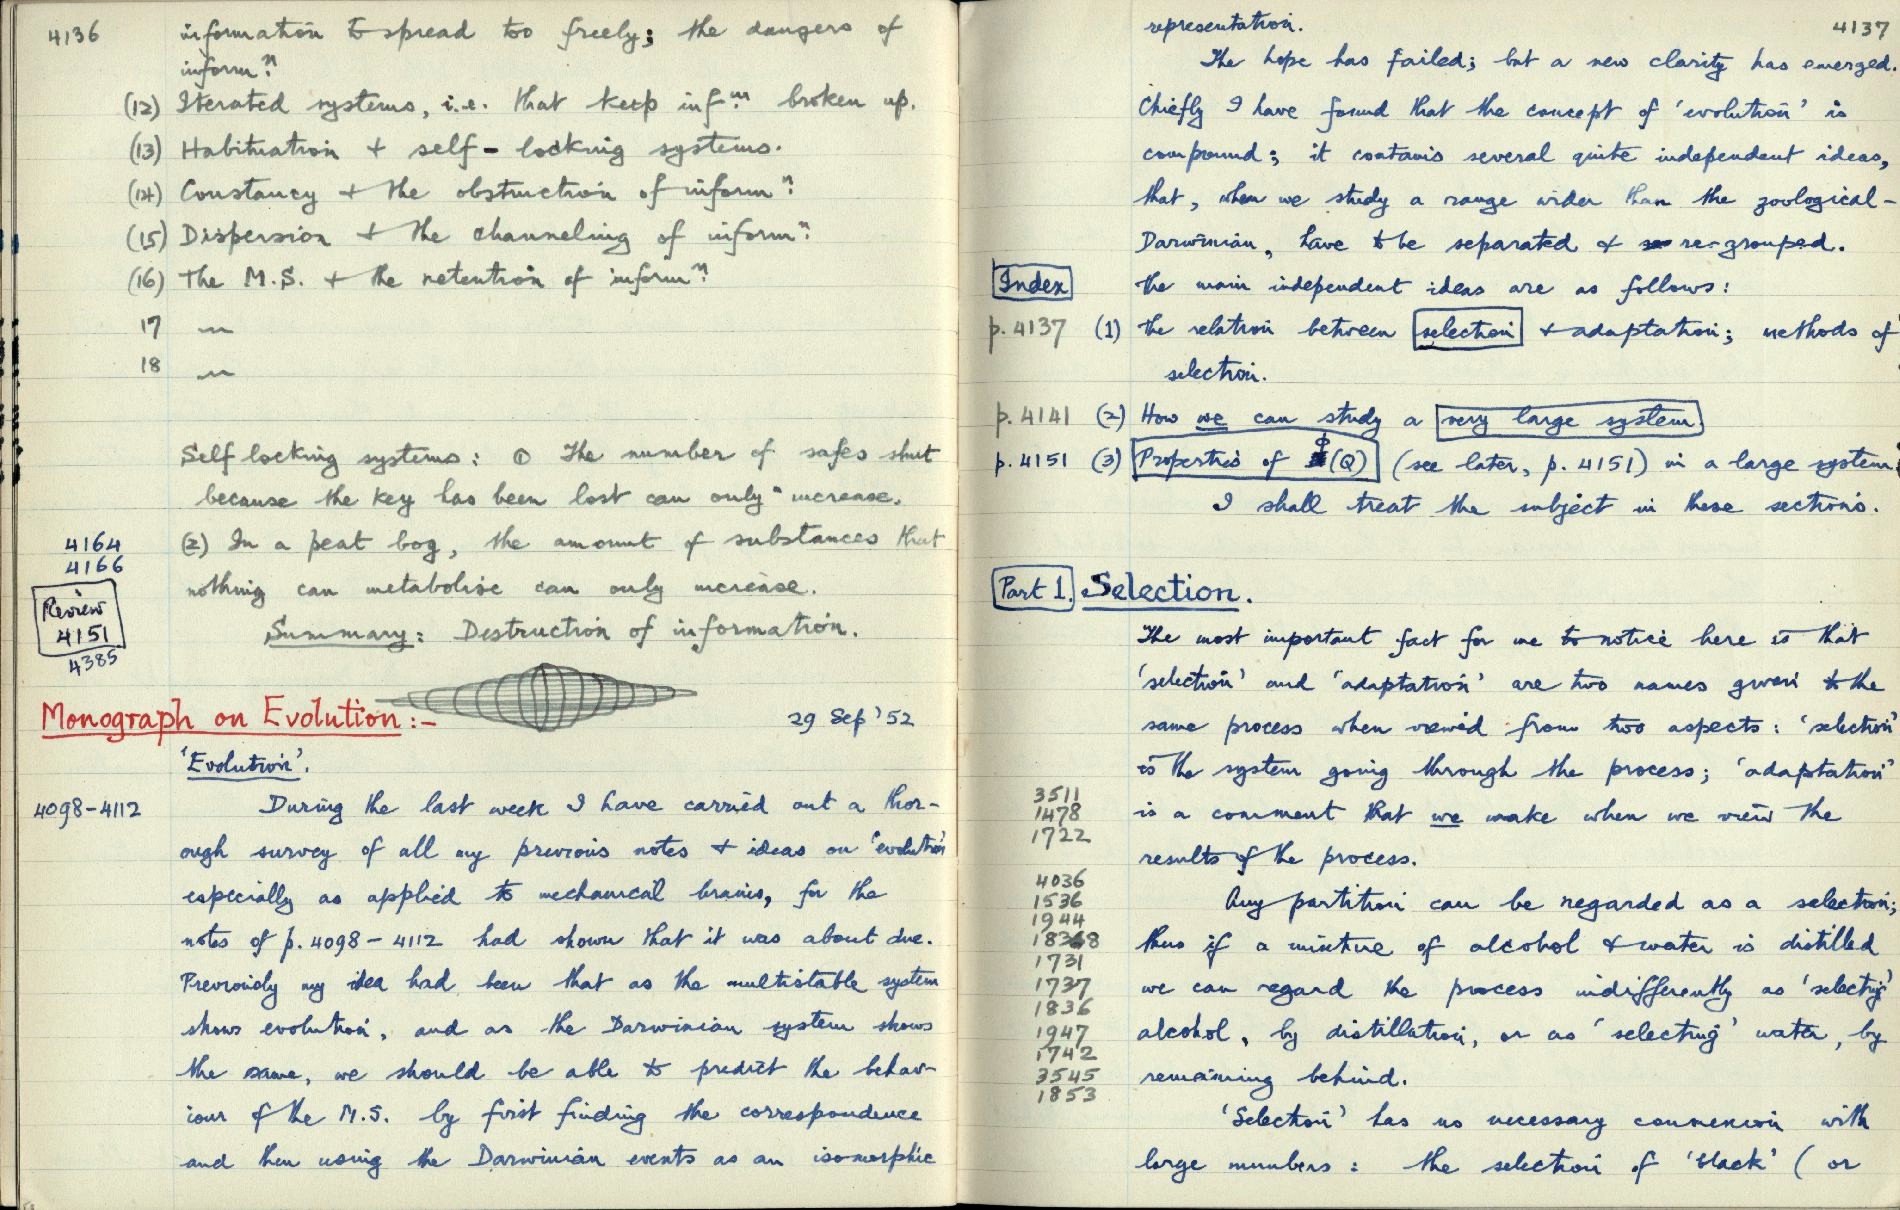 4136
information to spread too freely; the dangers of
inform.n
(12) Iterated systems, i.e. that keep inf.m broken up.
(13) Habituation + self-locking systems.
(14) Constancy + the obstruction of inform.n
(15) Dispersion + the channeling of inform.n
(16) The M.S. + the retention of inform.n
17 ~
18 ~
Self locking systems: ① The number of safes shut
because the key has been lost can only increase.
4164
4166
(2) In a peat bog, the amount of substances that
nothing can metabolise can only increase.
Review
4151
4385
Summary: Destruction of information.
Monograph on Evolution:-
29 Sep '52
'Evolution'.
4098-4112
During the last week I have carried out a thor-
ough survey of all my previous notes + ideas on 'evolution'
especially as applied to mechanical brains, for the
notes of p. 4098-4112 had shown that it was about due.
Previously my idea had been that as the multistable system
shows evolution, and as the Darwinian system shows
the same, we should be able to predict the behav-
iour of the M.S. by first finding the correspondence
and then using the Darwinian events as an isomorphic
4137
representation.
The hope has failed; but a new clarity has emerged.
Chiefly I have found that the concept of 'evolution' is
compound; it contains several quite independent ideas,
that, when we study a range wider than the zoological-
Darwinian, have to be separated & re-grouped.
Index
The main independent ideas are as follows:
p. 4137 (1) The relation between selection + adaptation; methods of
selection.
p. 4141 (2) How we can study a very large system.
p. 4151 (3) Properties of ϕ(Q) (see later, p. 4151) in a large system.
I shall treat the subject in these sections.
Part 1. Selection.
The most important fact for me to notice here is that
'selection' and 'adaptation' are two names given to the
same process when viewed from two aspects: 'selection'
is the system going through the process; 'adaptation'
is a comment that we make when we view the
results of the process.
3511
1478
1722
4036
1536
1944
1731
1737
1836
1947
1742
3545
1853
Any partition can be regarded as a selection;
thus if a mixture of alcohol & water is distilled
we can regard the process indifferently as 'selecting'
alcohol, by distillation, or as 'selecting' water, by
remaining behind.
'Selection' has no necessary connexion with
large numbers: the selection of 'black' (or